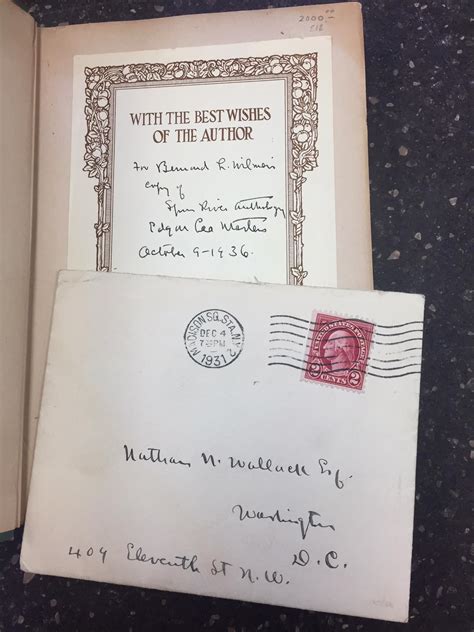 2000.-
WITH THE BEST WISHES
OF THE AUTHOR
For Bernard L. Wilmers
Copy of
Spoon River Anthology
Edgar Lee Masters
October 9-1936.
MADISON SQ. STA. N.Y.
DEC 4
7-PM
1931
2
UNITED STATES POSTAGE
2 CENTS 2
Nathan N. Wallack Esq.
Washington
D.C.
409 Eleventh St N.W.